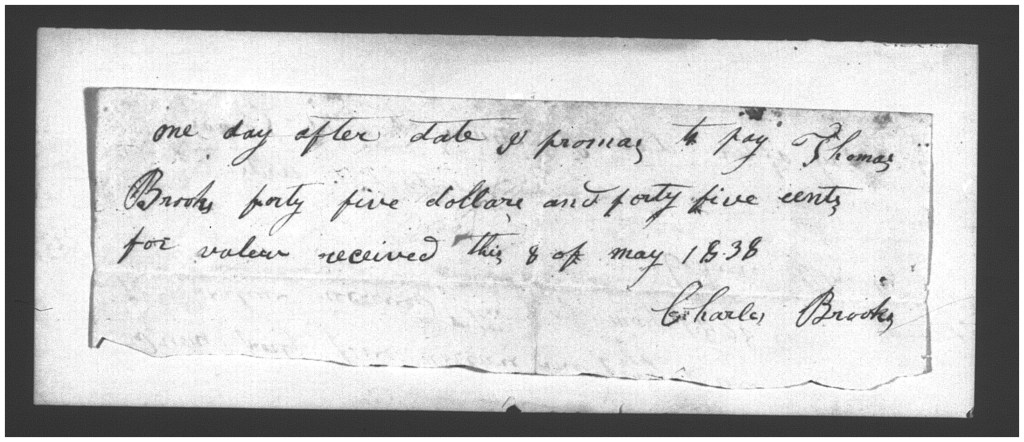 one day after date I promas to pay Thomas
Brooks forty five dollars and forty five cents
for valew received this 8 of may 1838
Charles Brooks